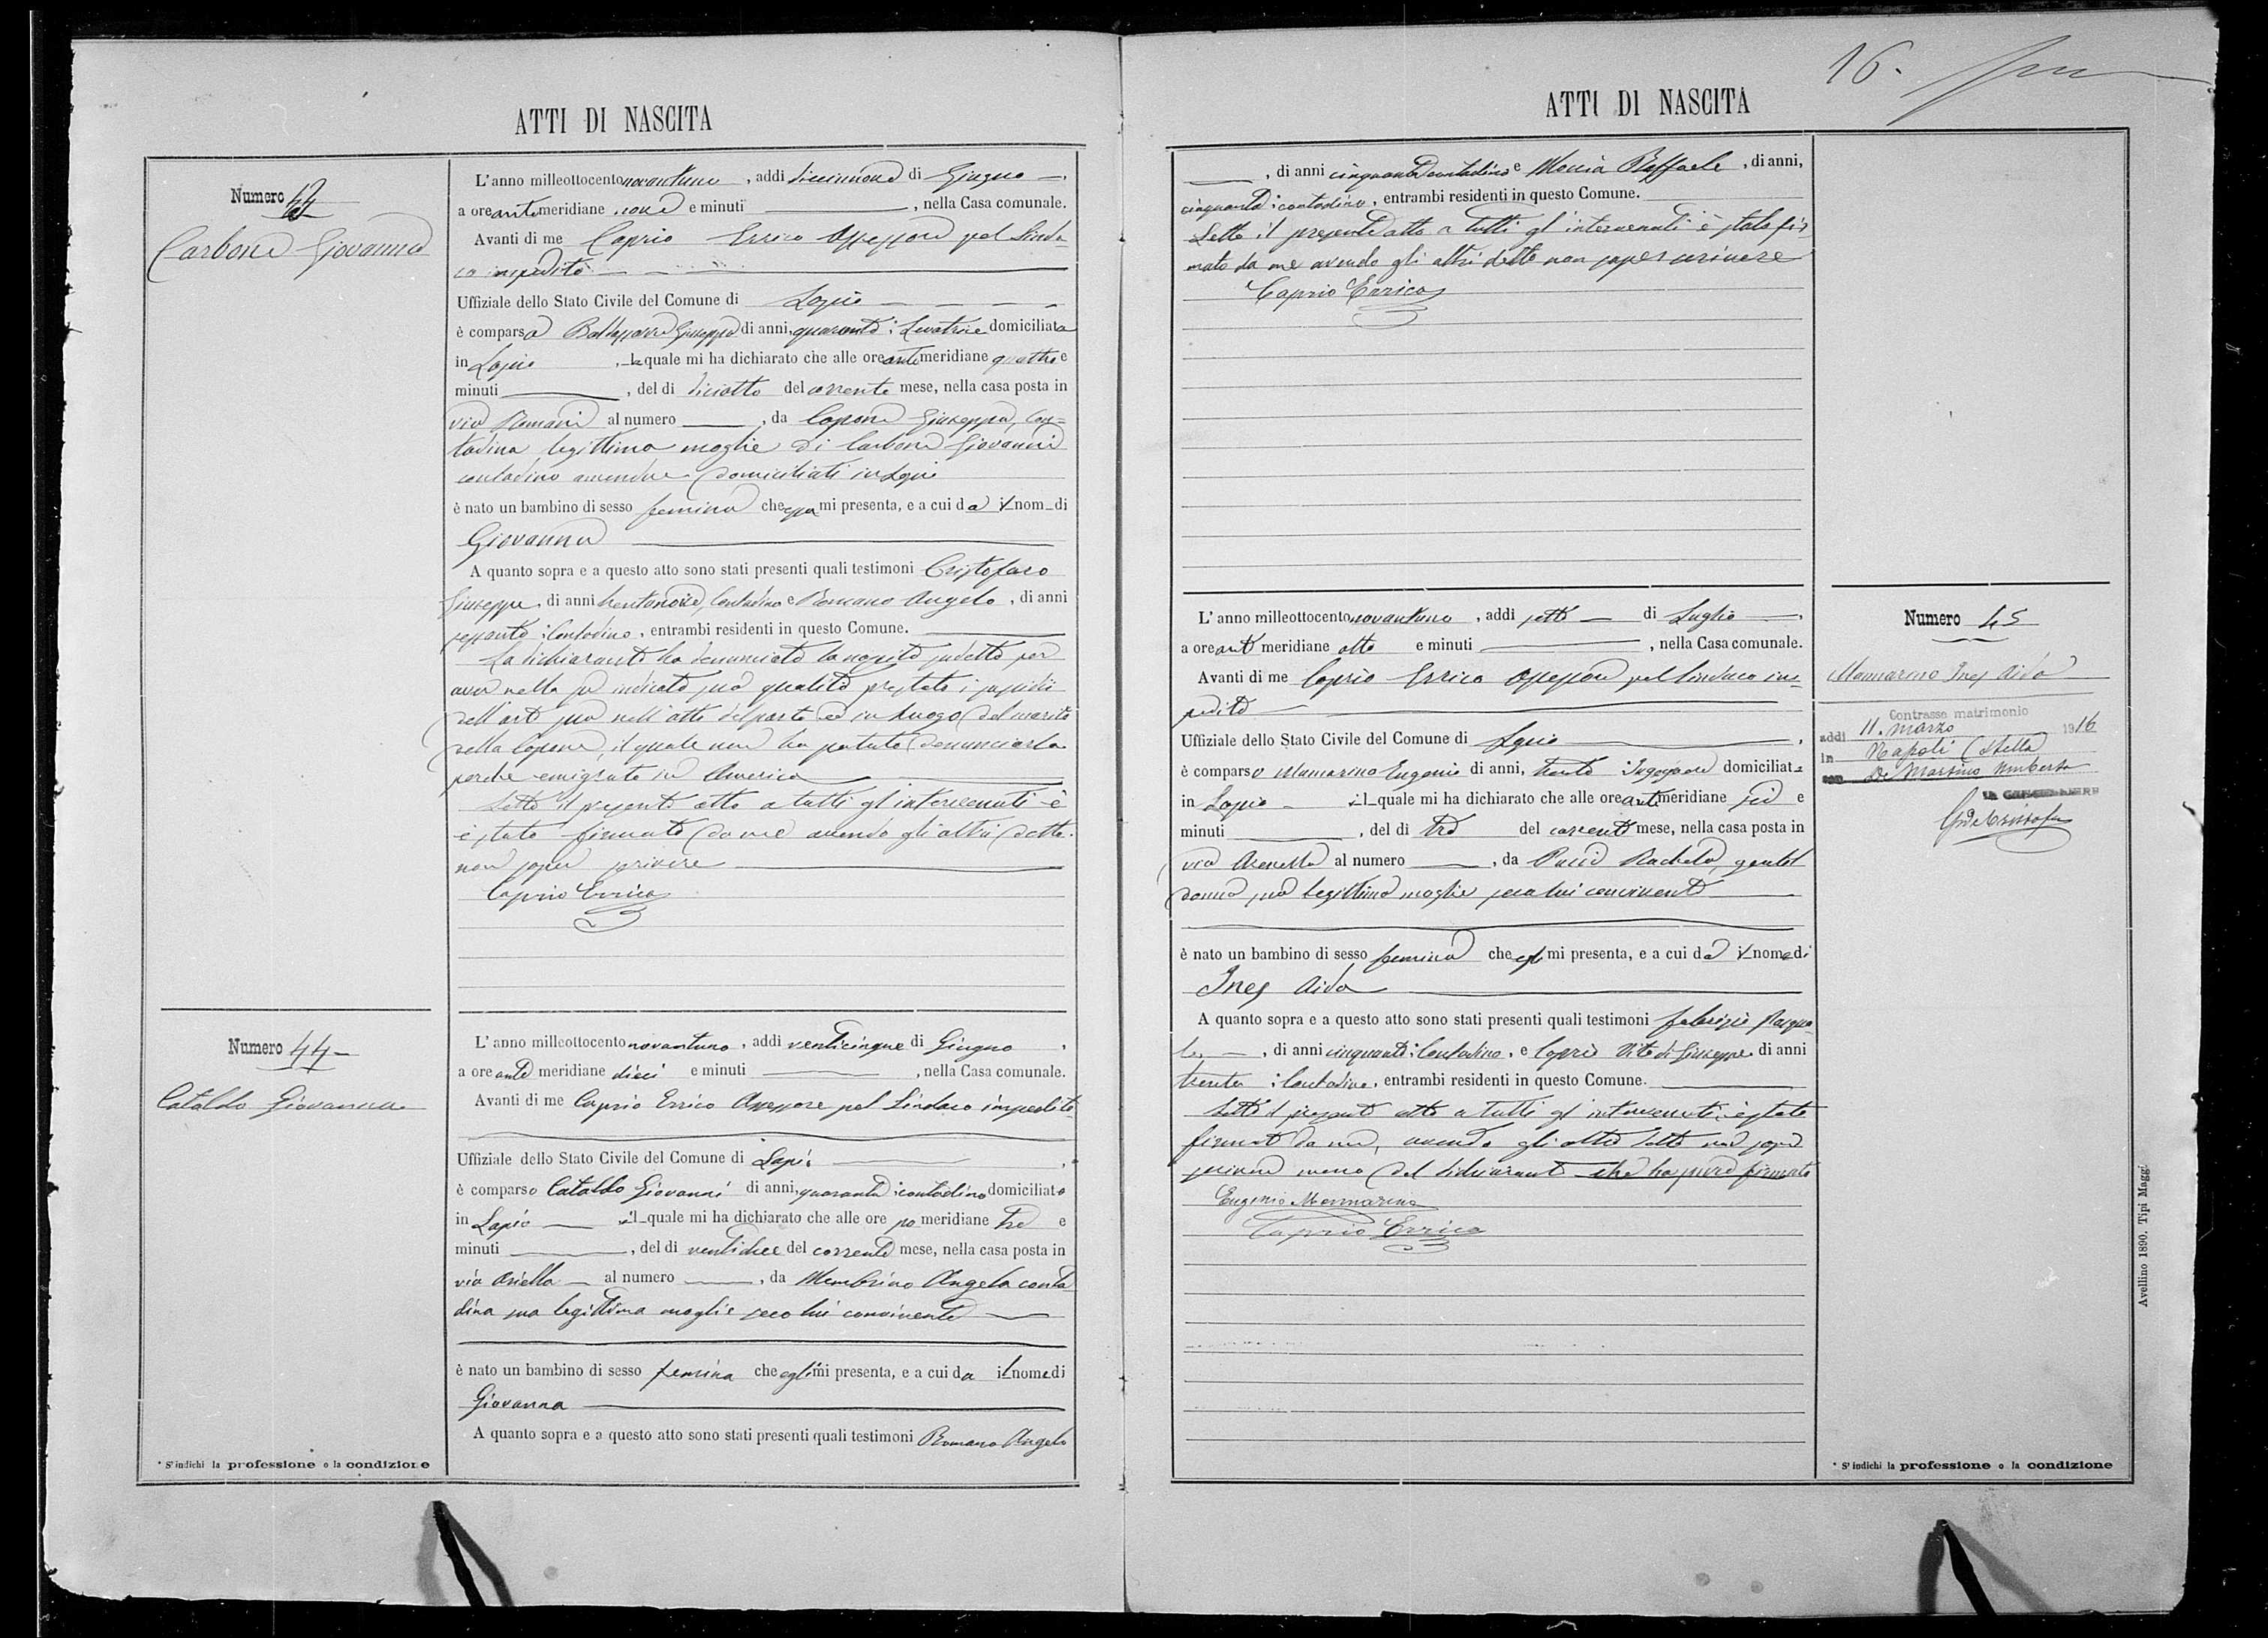 16.
ATTI DI NASCITA
Numero 43
Carbone Giovanna
L'anno milleottocento novantuno, addi diciannove di Giugno
a ore antimeridiane nove e minuti, nella Casa comunale.
Avanti di me Caprio Errico Assessore pel Sinda-
co impedito
Uffiziale dello Stato Civile del Comune di Lapio
è comparsa Baldassarre Giuseppa di anni, quaranta; Levatrice domiciliata
in Lapio, la quale mi ha dichiarato che alle ore antimeridiane quattro e
minuti, del di diciotto del corrente mese, nella casa posta in
via Romani al numero, da Capone Giuseppa, con=
tadina legittima moglie di Carbone Giovanni
contadino amendue domiciliati in Lapio
è nato un bambino di sesso femina che essa mi presenta, e a cui da il nom di
Giovanna
A quanto sopra e a questo atto sono stati presenti quali testimoni Cristofaro
Giuseppe, di anni trentanove, Contadino e Romano Angelo, di anni
sessanta; Contadino, entrambi residenti in questo Comune.
La dichiarante ha denunciato la nascita sudetta per
aver nella su indicata sua qualità prestato i sussidii
dell'arte sua nell'atto del parto ed in luogo del marito
della Capone, il quale non ha potuto denunciarla
perche emigrato in America
Letto il presente atto a tutti gl'intervenuti è
è stato firmato da me avendo gli altri detto
non saper scrivere
Caprio Errico
Numero 44
Cataldo Giovanna
L'anno milleottocento novantuno, addi venticinque di Giugno,
a ore ante meridiane dieci e minuti, nella Casa comunale.
Avanti di me Caprio Errico Assessore pel Sindaco impedito
Uffiziale dello Stato Civile del Comune di Lapio
è comparso Cataldo Giovanni di anni, quaranta; contadino domiciliato
in Lapio il quale mi ha dichiarato che alle ore pomeridiane tre e
minuti, del di ventidue del corrente mese, nella casa posta in
via Ariella al numero, da Membrino Angela conta
dina sua legittima moglie seco lui convivente
è nato un bambino di sesso femina che egli mi presenta, e a cui da il nome di
Giovanna
A quanto sopra e a questo atto sono stati presenti quali testimoni Romano Angelo
* S'indichi la professione o la condizione
ATTI DI NASCITA
, di anni cinquanta contadino e Moccia Raffaele, di anni,
cinquanta; contadino, entrambi residenti in questo Comune.
Letto il presente atto a tutti gl'intervenuti è stato fir
mato da me avendo gli altri detto non saper scrivere
Caprio Errico
L'anno milleottocento novantuno, addi sette di Luglio,
a ore ant meridiane otto e minuti, nella Casa comunale.
Avanti di me Caprio Errico Assessore pel Sindaco im-
pedito
Uffiziale dello Stato Civile del Comune di Lapio,
è comparso Mamarino Eugenio di anni, trenta domiciliat
in Lapio il quale mi ha dichiarato che alle ore antimeridiane sei e
minuti, del di tre del corrente mese, nella casa posta in
via Arenella al numero, da Rachela, gentil
donna sua legittima moglie seco lui convivente
è nato un bambino di sesso femina che egli mi presenta, e a cui da il nome di
Ines Aida
A quanto sopra e a questo atto sono stati presenti quali testimoni Fabrizio Pasqua-
le, di anni cinquanta; Contadino, e Caprio Vito di Giuseppe di anni
trenta; Contadino, entrambi residenti in questo Comune.
Letto il presente atto a tutti gl'intervenuti, è stato
firmato da me, avendo gli altri detto non saper
scrivere meno del dichiarante che ha pure firmato
Eugenio Mammarino
Caprio Errico
Numero 45
Mamarino Ines Aida
Contrasse matrimonio
addi 11. Marzo 1916
in Napoli (Stella)
con De Martino Umberto
IL CANCELLIERE
* S'indichi la professione o la condizione
Avellino 1890. Tipi Maggi